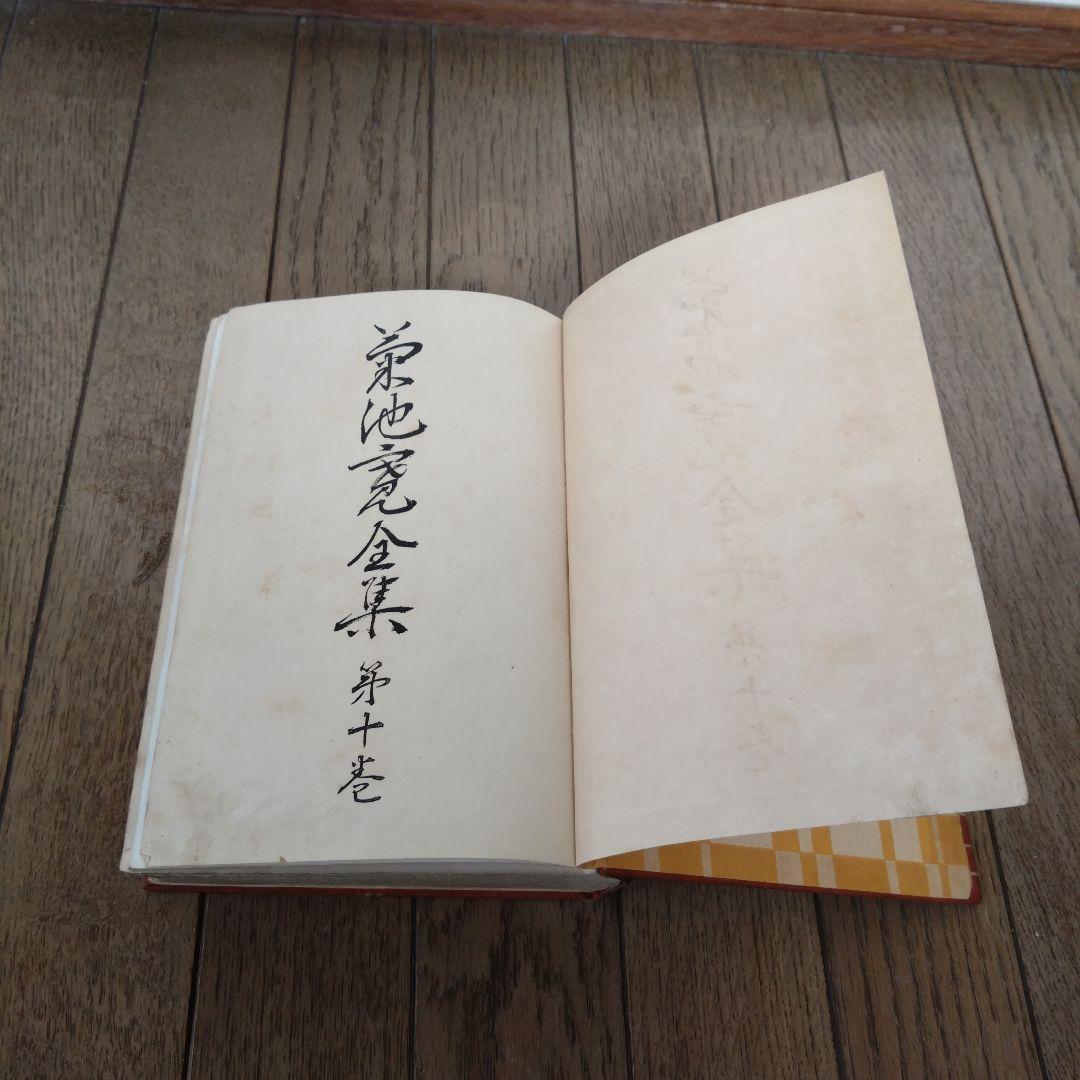 菊池寛全集 第十巻